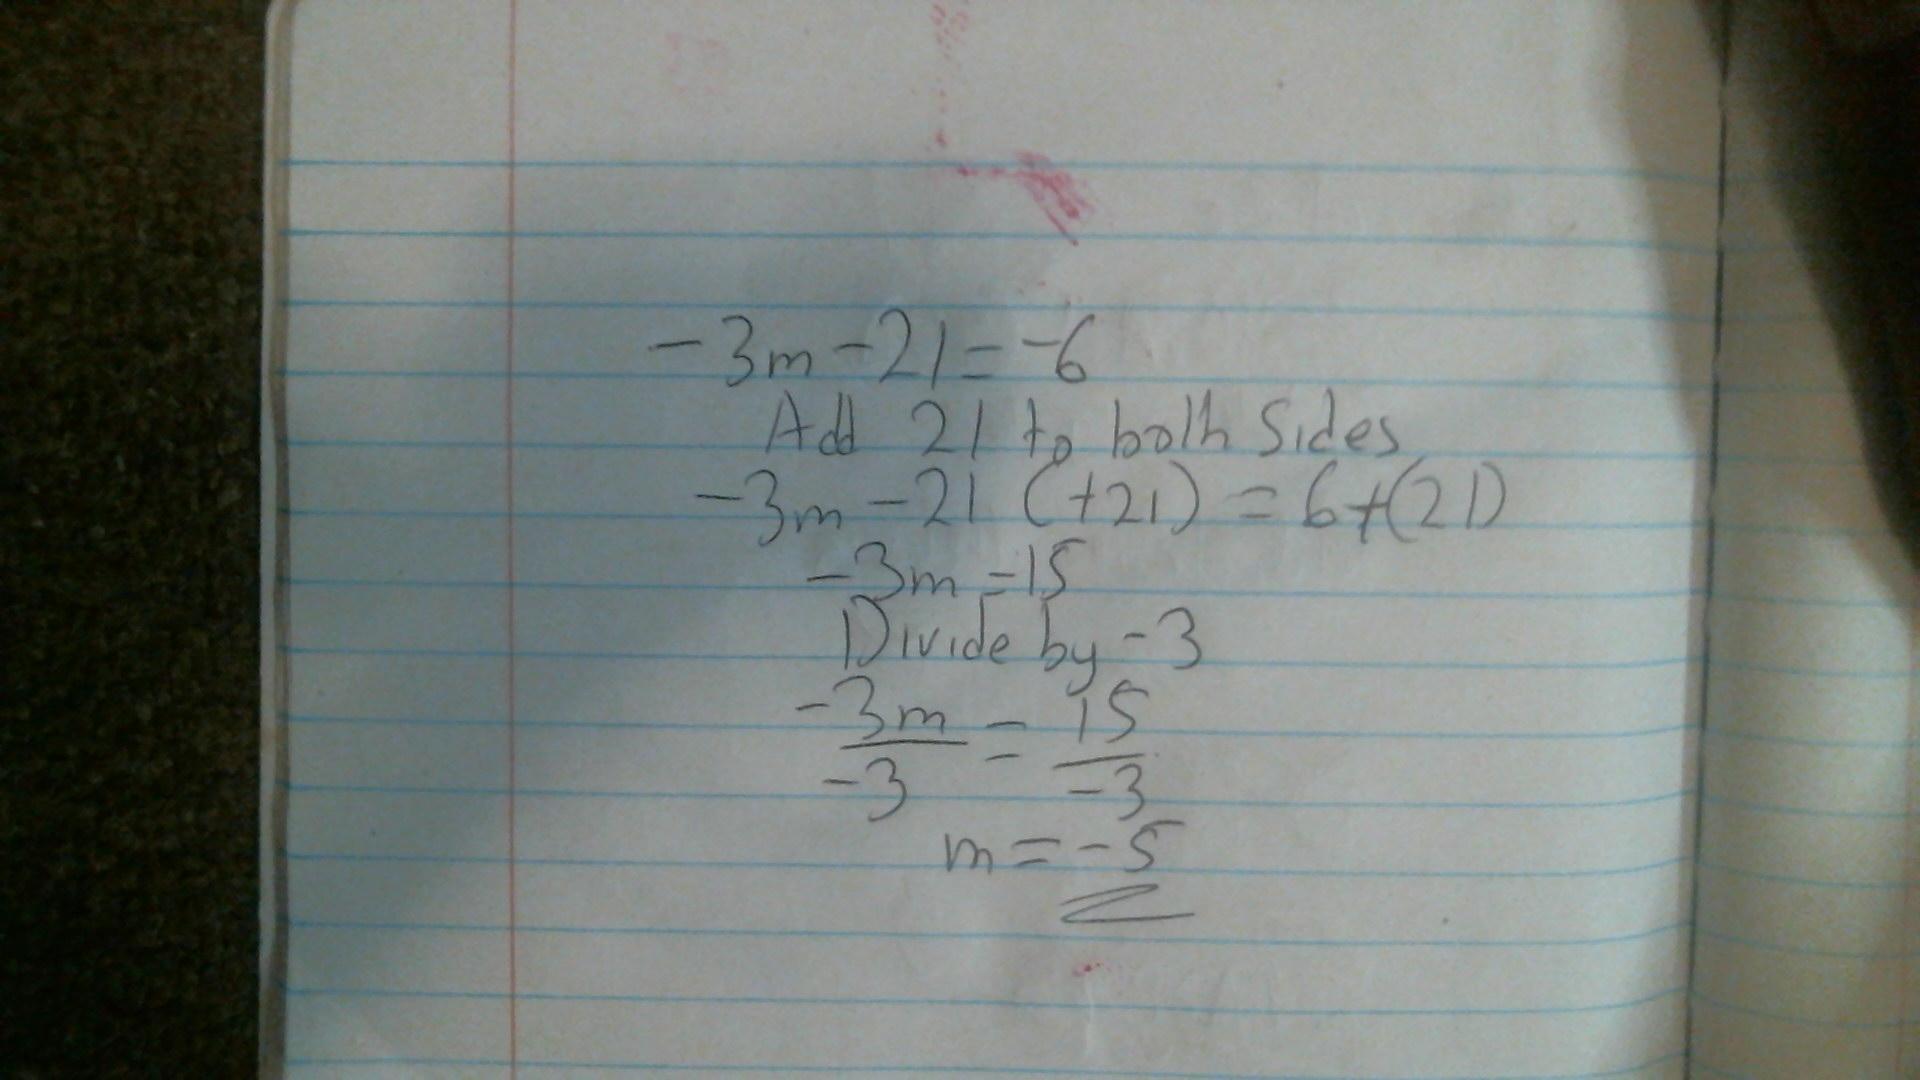 -3m-21=-6
Add 21 to both sides
-3m-21 (+21) = 6+(21)
-3m=15
Divide by -3
-3m = 15
-3 -3
m=-5